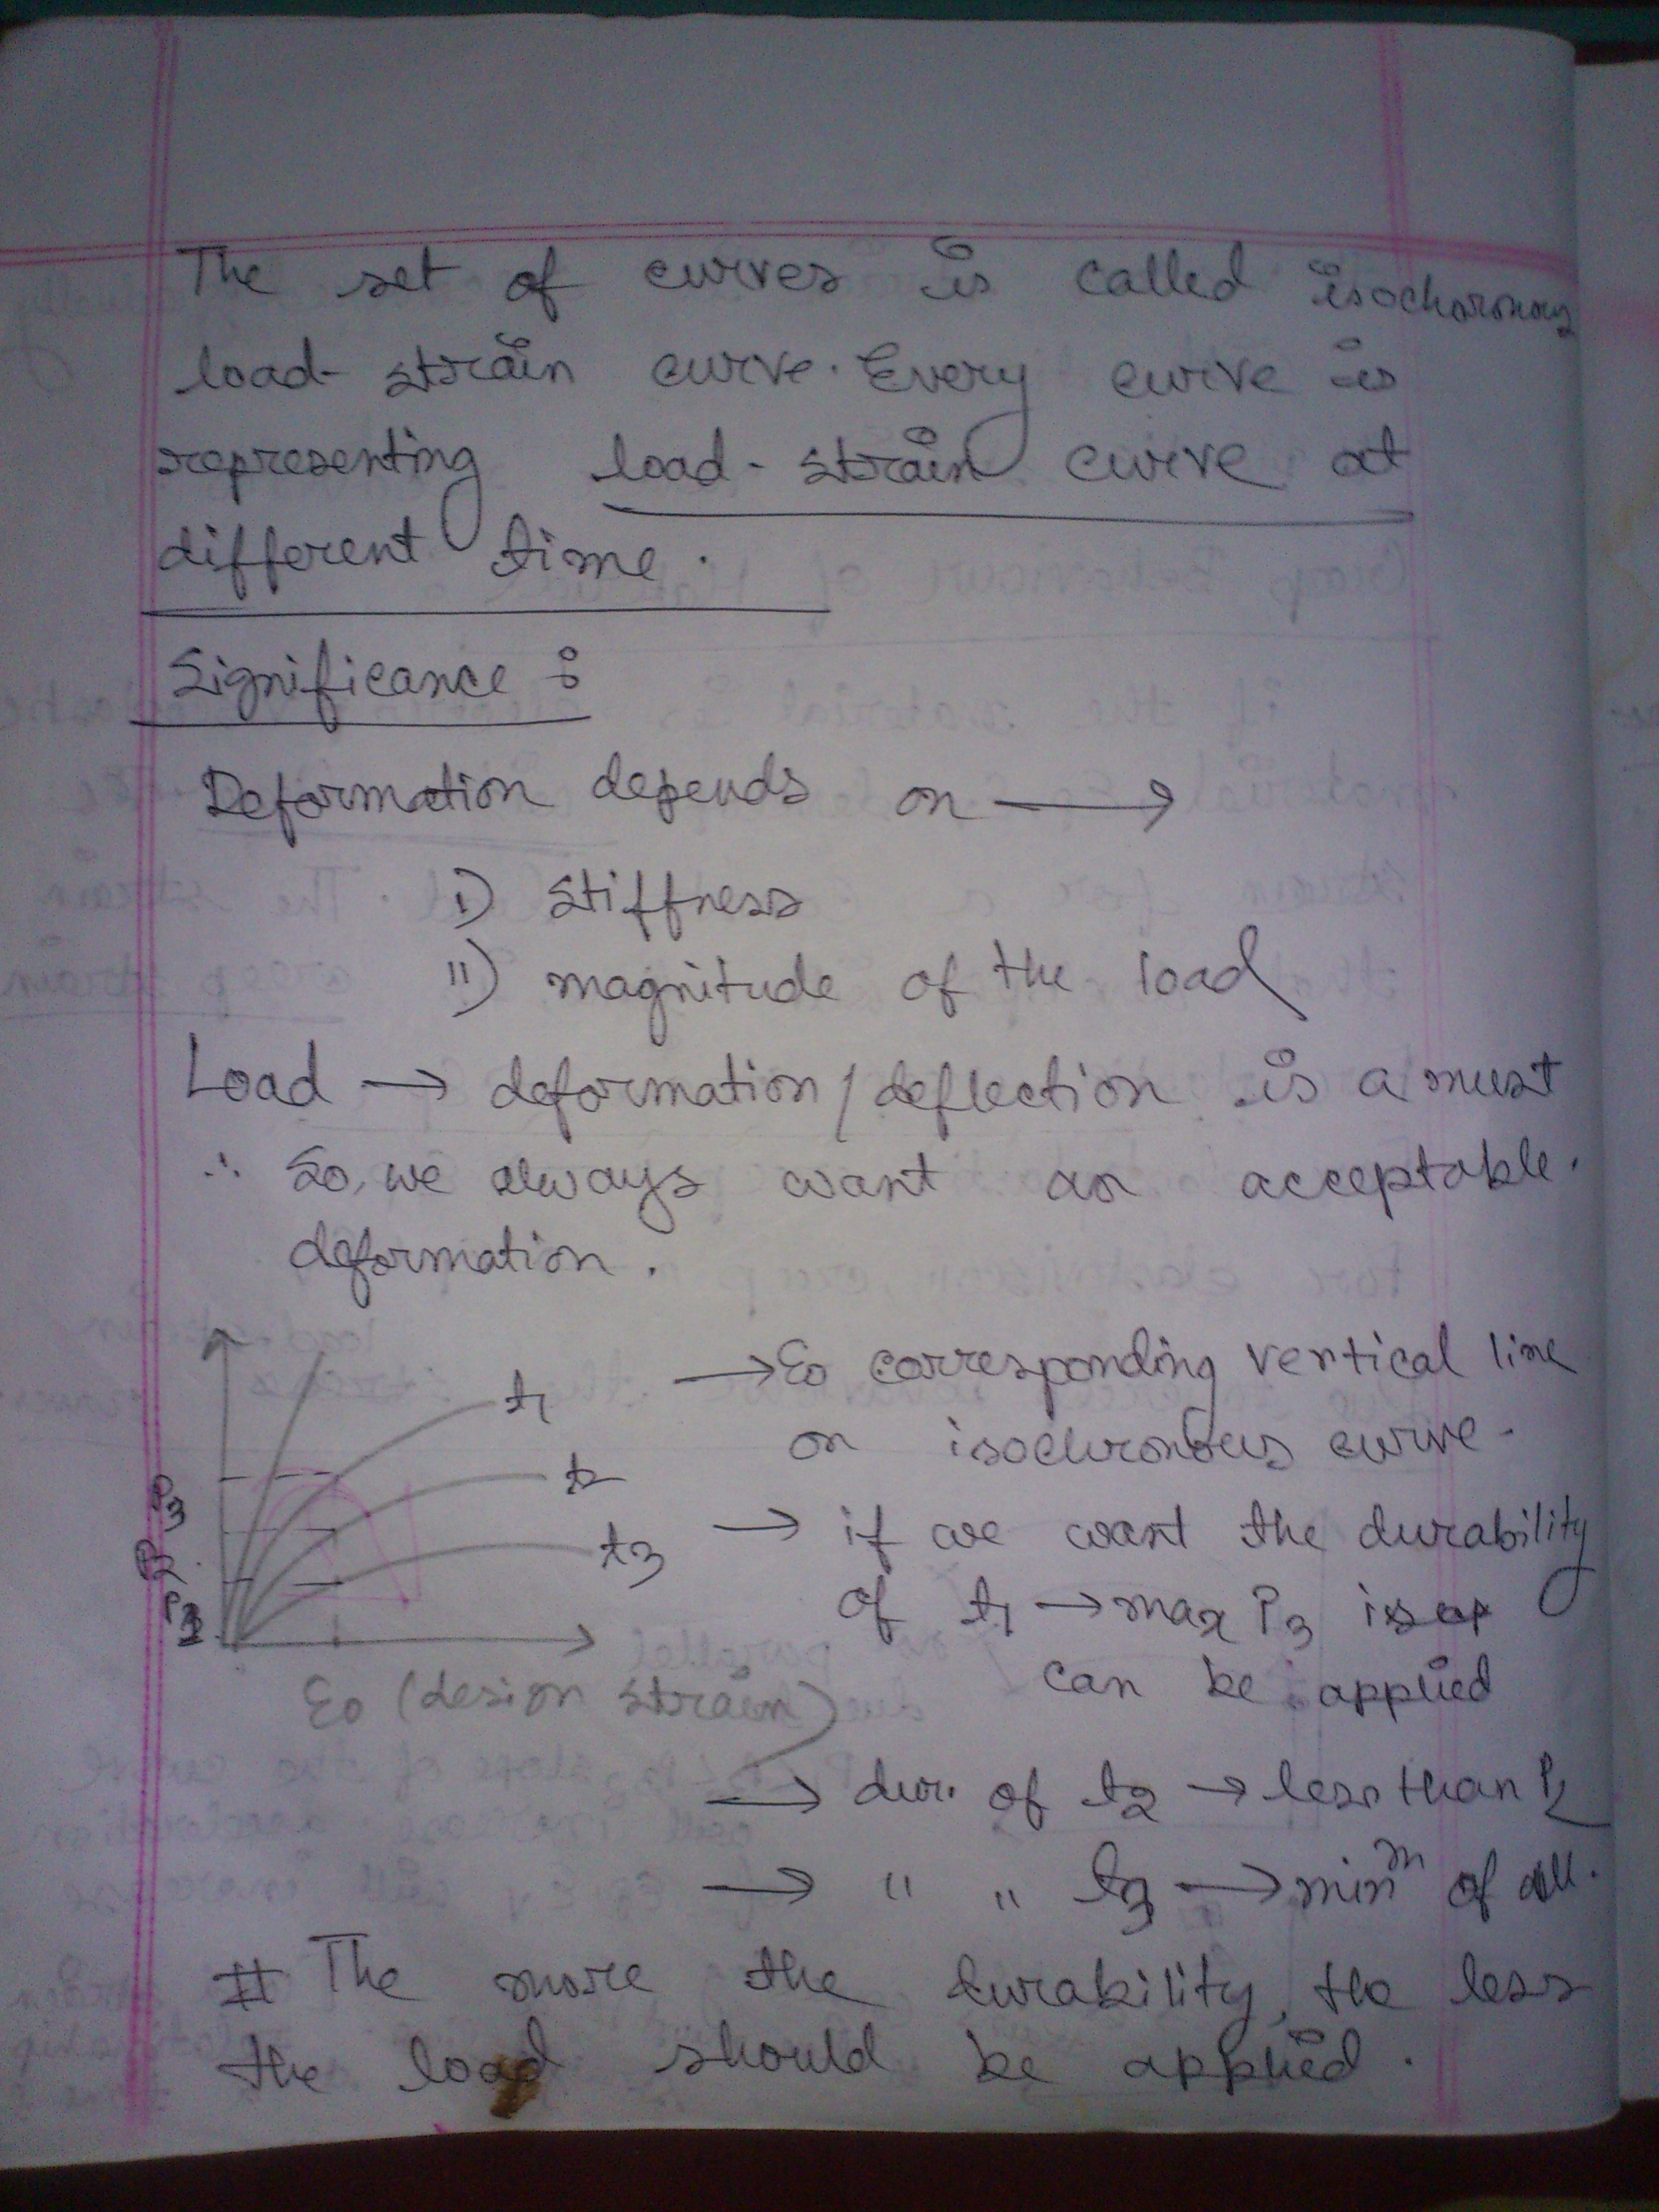 The set of curves is called isochoronous
load-strain curve. Every curve is
representing load-strain curve at
different time.
Significance :
Deformation depends on →
i) Stiffness
ii) magnitude of the load
Load → deformation / deflection is a must
∴ So, we always want an acceptable.
deformation.
t1
t2
t3
P3
P2
ε0 (design strain)
→ ε0 corresponding vertical line
on isochronous curve.
→ if we want the durability
of t1 → max P3 is
can be applied
→ dur. of t2 → less than P2
→ " " t3 → minm of all.
# The more the durability, the less
the load should be applied.